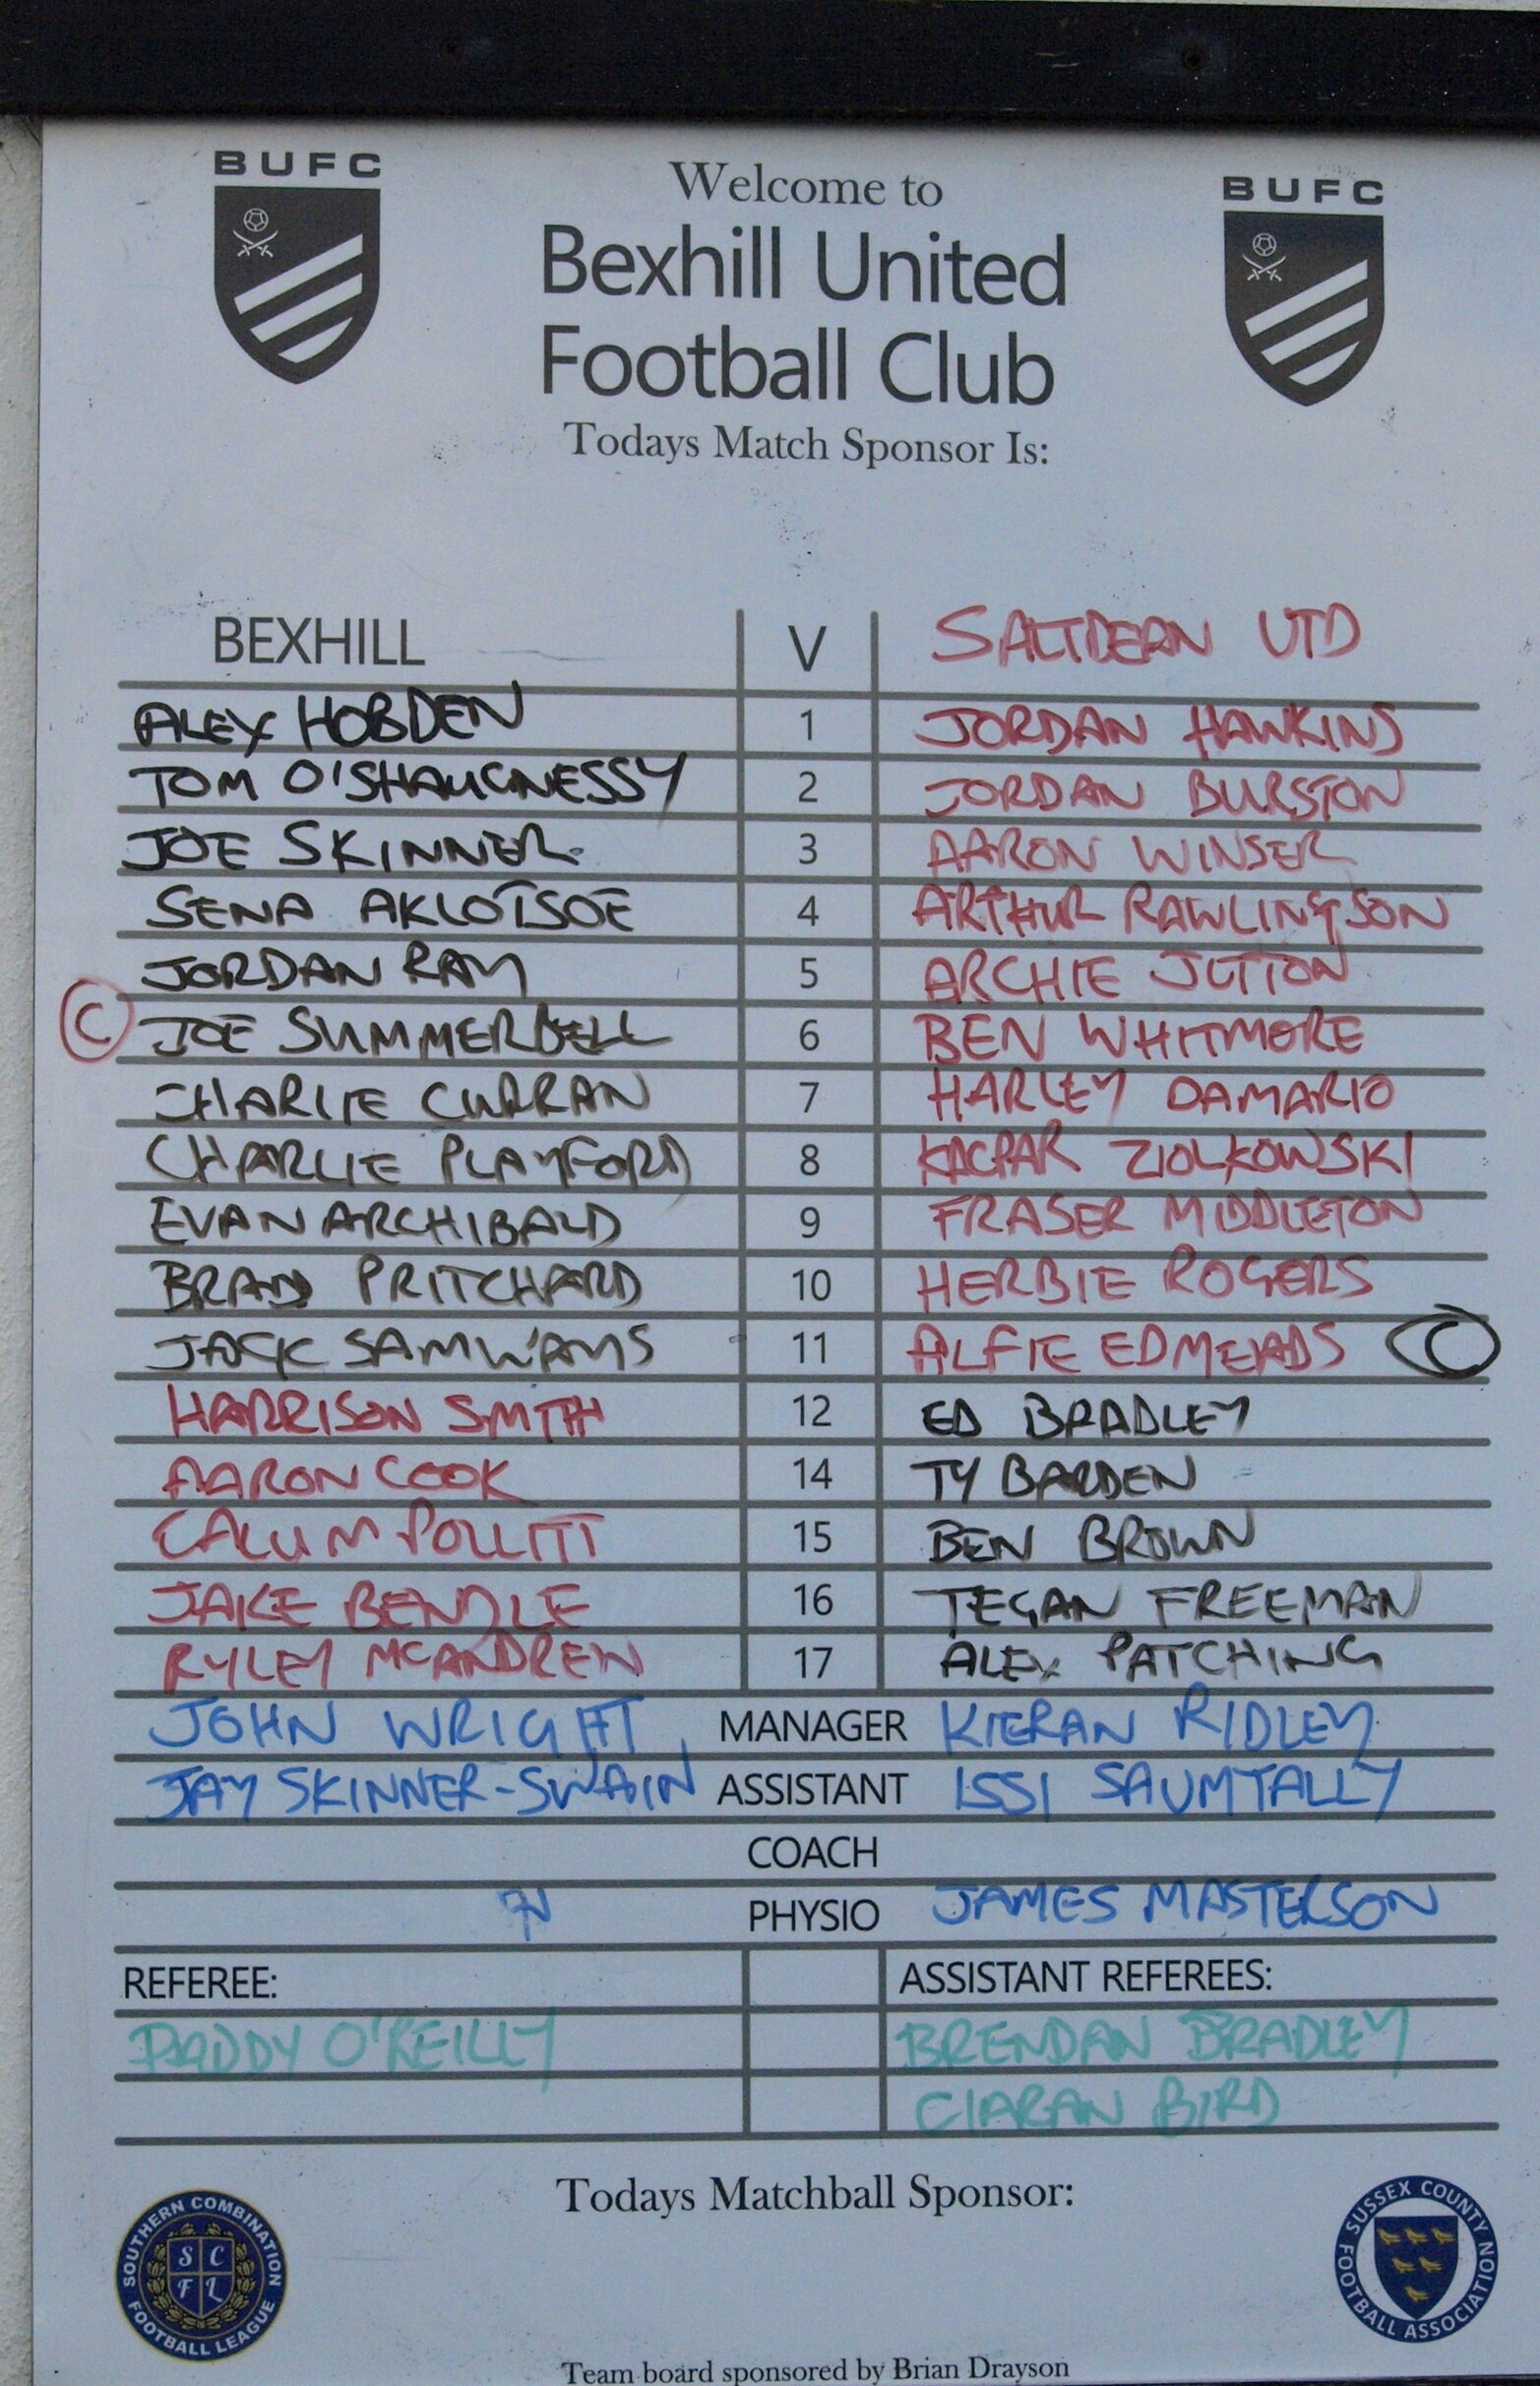 BUFC
Welcome to
BUFC
Bexhill United
Football Club
Todays Match Sponsor Is:
BEXHILL V SALTDEAN UTD
ALEX HOBDEN 1 JORDAN HAWKINS
TOM O'SHAUGNESSY 2 JORDAN BURSTON
JOE SKINNER 3 AARON WINSER
SENA AKLOTSOE 4 ARTHUR RAWLINGSON
JORDAN RAY 5 ARCHIE JUTTON
C JOE SUMMERBELL 6 BEN WHITMORE
CHARLIE CURRAN 7 HARLEY DAMARIO
CHARLIE PLAYFORD 8 KACPAR ZIOLKOWSKI
EVAN ARCHIBALD 9 FRASER MIDDLETON
BRAD PRITCHARD 10 HERBIE ROGERS
JACK SAMWAYS 11 ALFIE EDMEADS C
HARRISON SMITH 12 ED BRADLEY
AARON COOK 14 TY BARDEN
CALUM POLLITT 15 BEN BROWN
JAKE BENDLE 16 TEGAN FREEMAN
RYLEY MCANDREW 17 ALEX PATCHING
JOHN WRIGHT MANAGER KIERAN RIDLEY
JAY SKINNER-SWAIN ASSISTANT ISSI SAUMTALLY
COACH
PHYSIO JAMES MASTERSON
REFEREE: ASSISTANT REFEREES:
PADDY O'REILLY BRENDAN BRADLEY
CIARAN BIRD
Todays Matchball Sponsor:
SOUTHERN COMBINATION FOOTBALL LEAGUE
S C
F L
SUSSEX COUNTY FOOTBALL ASSOCIATION
Team board sponsored by Brian Drayson